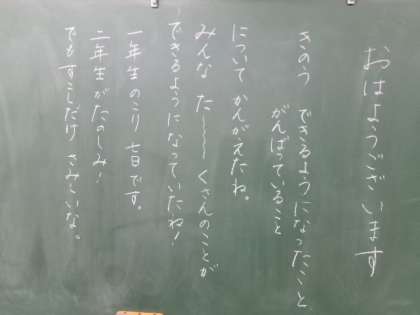 おはようございます
きのう できるようになったこと
がんばっていること
について かんがえたね。
みんな た〜〜〜くさんのことが
できるようになっていたね!
一年生 のこり 七日です。
二年生がたのしみ!
でもすこしだけ さみしいな。